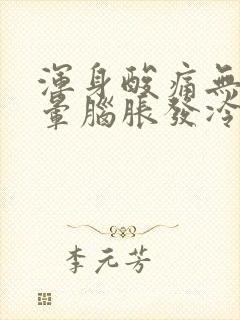 渾身酸痛無
暈腦脹發冷
李元芳